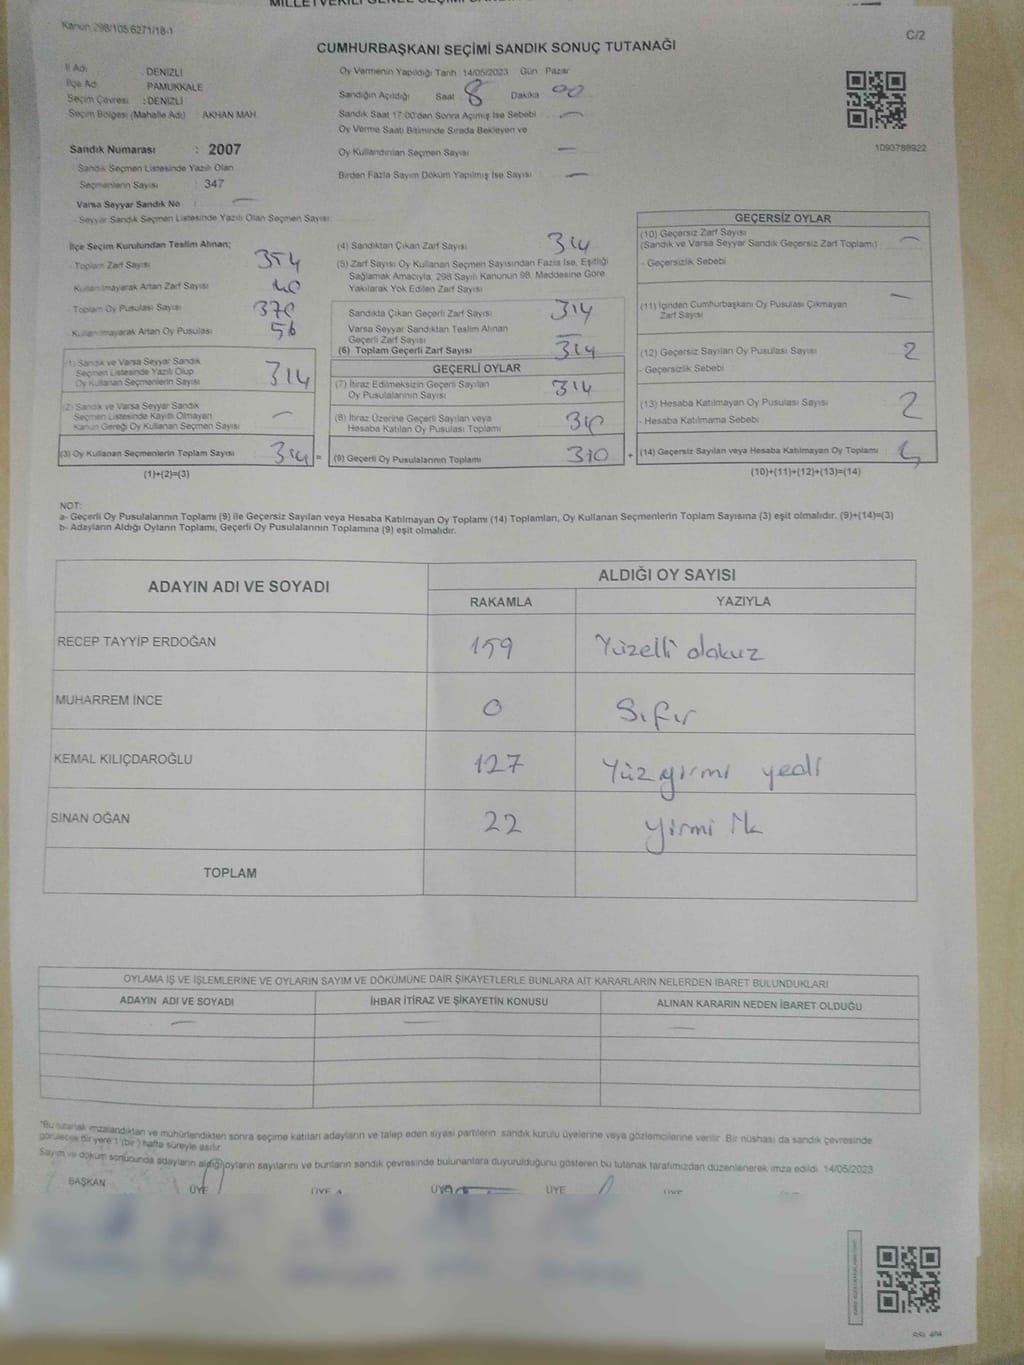 Kanun 298/105,6271/18-1
C/2
CUMHURBAŞKANI SEÇİMİ SANDIK SONUÇ TUTANAĞI
İl Adı : DENİZLİ
İlçe Adı : PAMUKKALE
Seçim Çevresi : DENİZLİ
Seçim Bölgesi (Mahalle Adı) AKHAN MAH.
Sandık Numarası : 2007
- Sandık Seçmen Listesinde Yazılı Olan
Seçmenlerin Sayısı : 347
Varsa Seyyar Sandık No : —
- Seyyar Sandık Seçmen Listesinde Yazılı Olan Seçmen Sayısı
Oy Vermenin Yapıldığı Tarih 14/05/2023 Gün Pazar
Sandığın Açıldığı Saat 8 Dakika 00
Sandık Saat 17:00'den Sonra Açılmış İse Sebebi —
Oy Verme Saati Bitiminde Sırada Bekleyen ve
Oy Kullandırılan Seçmen Sayısı —
Birden Fazla Sayım Döküm Yapılmış İse Sayısı —
1093788922
İlçe Seçim Kurulundan Teslim Alınan;
- Toplam Zarf Sayısı 354
Kullanılmayarak Artan Zarf Sayısı 40
Toplam Oy Pusulası Sayısı 370
- Kullanılmayarak Artan Oy Pusulası 56
(1) Sandık ve Varsa Seyyar Sandık
Seçmen Listesinde Yazılı Olup
Oy Kullanan Seçmenlerin Sayısı 314
(2) Sandık ve Varsa Seyyar Sandık
Seçmen Listesinde Kayıtlı Olmayan
Kanun Gereği Oy Kullanan Seçmen Sayısı —
(3) Oy Kullanan Seçmenlerin Toplam Sayısı 314 =
(1)+(2)=(3)
(4) Sandıktan Çıkan Zarf Sayısı 314
(5) Zarf Sayısı Oy Kullanan Seçmen Sayısından Fazla İse, Eşitliği
Sağlamak Amacıyla, 298 Sayılı Kanunun 98. Maddesine Göre
Yakılarak Yok Edilen Zarf Sayısı
Sandıkta Çıkan Geçerli Zarf Sayısı 314
Varsa Seyyar Sandıktan Teslim Alınan
Geçerli Zarf Sayısı —
(6) Toplam Geçerli Zarf Sayısı 314
GEÇERLİ OYLAR
(7) İtiraz Edilmeksizin Geçerli Sayılan
Oy Pusulalarının Sayısı 314
(8) İtiraz Üzerine Geçerli Sayılan veya
Hesaba Katılan Oy Pusulası Toplamı
(9) Geçerli Oy Pusulalarının Toplamı 310 +
GEÇERSİZ OYLAR
(10) Geçersiz Zarf Sayısı
(Sandık ve Varsa Seyyar Sandık Geçersiz Zarf Toplamı) —
- Geçersizlik Sebebi
(11) İçinden Cumhurbaşkanı Oy Pusulası Çıkmayan
Zarf Sayısı —
(12) Geçersiz Sayılan Oy Pusulası Sayısı 2
- Geçersizlik Sebebi
(13) Hesaba Katılmayan Oy Pusulası Sayısı 2
- Hesaba Katılmama Sebebi
(14) Geçersiz Sayılan veya Hesaba Katılmayan Oy Toplamı
(10)+(11)+(12)+(13)=(14)
NOT:
a- Geçerli Oy Pusulalarının Toplamı (9) ile Geçersiz Sayılan veya Hesaba Katılmayan Oy Toplamı (14) Toplamları, Oy Kullanan Seçmenlerin Toplam Sayısına (3) eşit olmalıdır. (9)+(14)=(3)
b- Adayların Aldığı Oyların Toplamı, Geçerli Oy Pusulalarının Toplamına (9) eşit olmalıdır.
ADAYIN ADI VE SOYADI
ALDIĞI OY SAYISI
RAKAMLA YAZIYLA
RECEP TAYYİP ERDOĞAN 159 Yüzelli dokuz
MUHARREM İNCE 0 Sıfır
KEMAL KILIÇDAROĞLU 127 Yüz yirmi yedi
SİNAN OĞAN 22 yirmi
TOPLAM
OYLAMA İŞ VE İŞLEMLERİNE VE OYLARIN SAYIM VE DÖKÜMÜNE DAİR ŞİKAYETLERLE BUNLARA AİT KARARLARIN NELERDEN İBARET BULUNDUKLARI
ADAYIN ADI VE SOYADI İHBAR İTİRAZ VE ŞİKAYETİN KONUSU ALINAN KARARIN NEDEN İBARET OLDUĞU
— — —
*Bu tutanak imzalandıktan ve mühürlendikten sonra seçime katılan adayların ve talep eden siyasi partilerin sandık kurulu üyelerine veya gözlemcilerine verilir. Bir nüshası da sandık çevresinde
görülecek bir yere 1 (bir) hafta süreyle asılır.
Sayım ve döküm sonucunda adayların aldığı oyların sayılarını ve bunların sandık çevresinde bulunanlara duyurulduğunu gösteren bu tutanak tarafımızdan düzenlenerek imza edildi. 14/05/2023
BAŞKAN ÜYE ÜYE ÜYE ÜYE